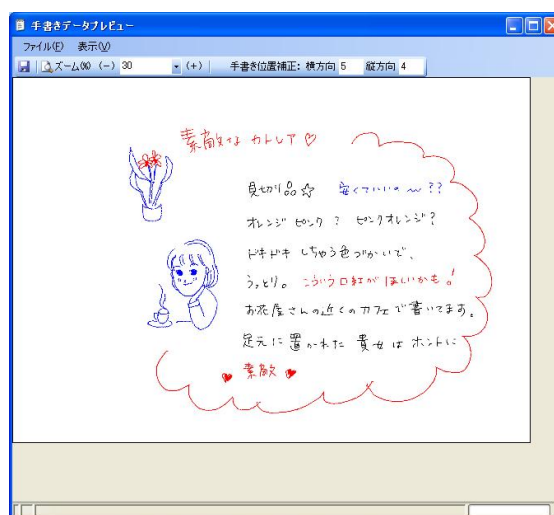 手書きデータプレビュー
ファイル(F) 表示(V)
ズーム(%) (-) 30 (+) 手書き位置補正: 横方向 5 縦方向 4
素敵なカトレア♡
見切り品☆ 安くていいの〜??
オレンジピンク? ピンクオレンジ?
ドキドキしちゃう色づかいで、
うっとり。こういう口紅がほしいかも!
お花屋さんの近くのカフェで書いてます。
足元に置かれた貴女はホントに
♥素敵♥